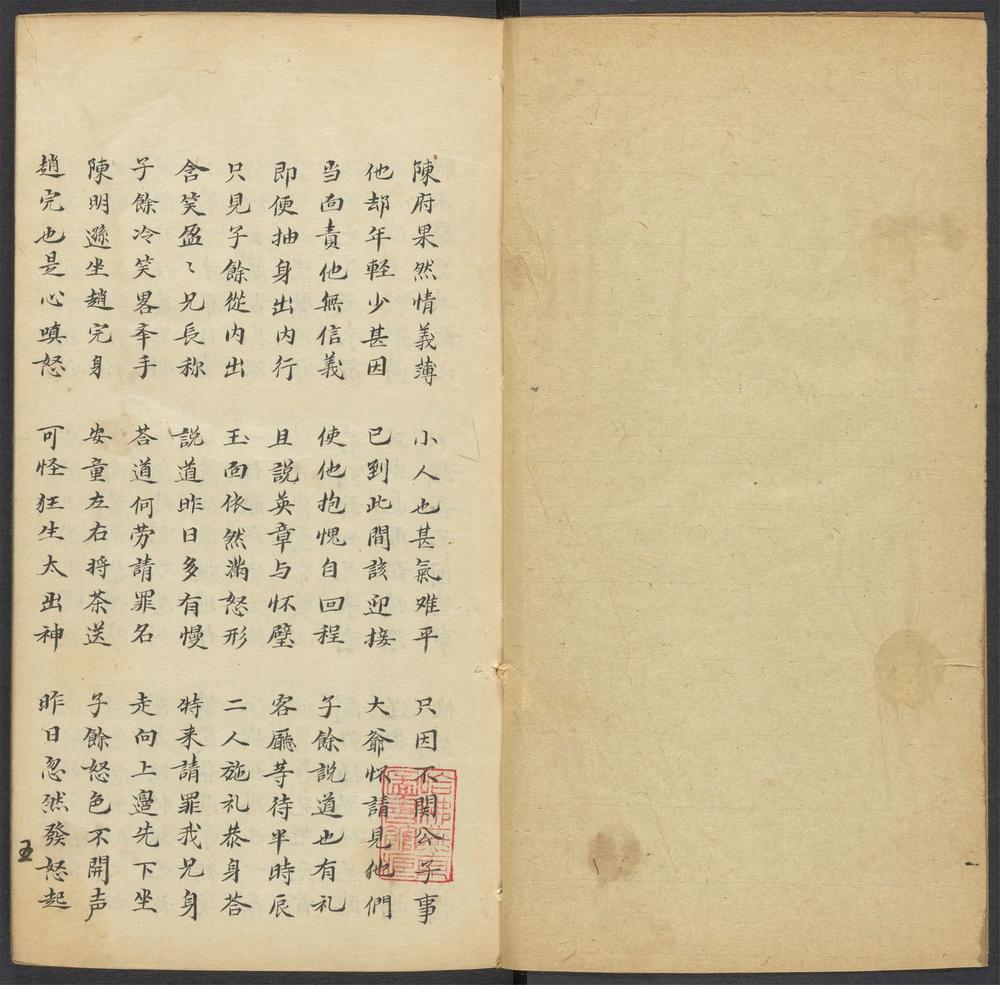 陳府果然情義薄 小人也甚氣难平 只因不関公子事
他却年軽少甚因 已到此間該迎接 大爺怀請見他們
当面責他無信義 使他抱愧自回程 子餘説道也有礼
即便抽身出内行 且説英章与怀璧 客廳等待半時辰
只見子餘從内出 玉面依然滿怒形 二人施礼恭身荅
含笑盈〻兄長称 説道昨日多有慢 特来請罪我兄身
子餘冷笑畧奉手 荅道何劳請罪名 走向上邉先下坐
陳明遜坐趙完身 安童左右将茶送 子餘怒色不開声
趙完也是心嗔怒 可怪狂生太出神 昨日忽然發怒起
五
哈佛燕京圖書館